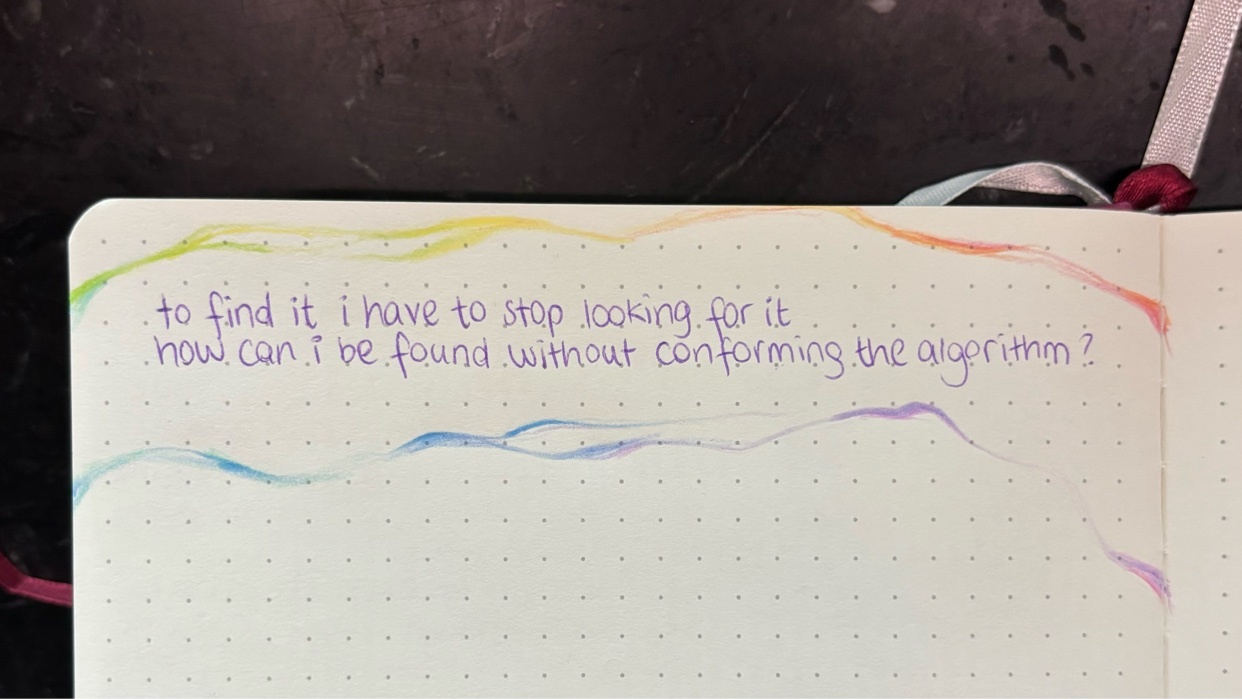 to find it i have to stop looking for it
how can i be found without conforming the algorithm?